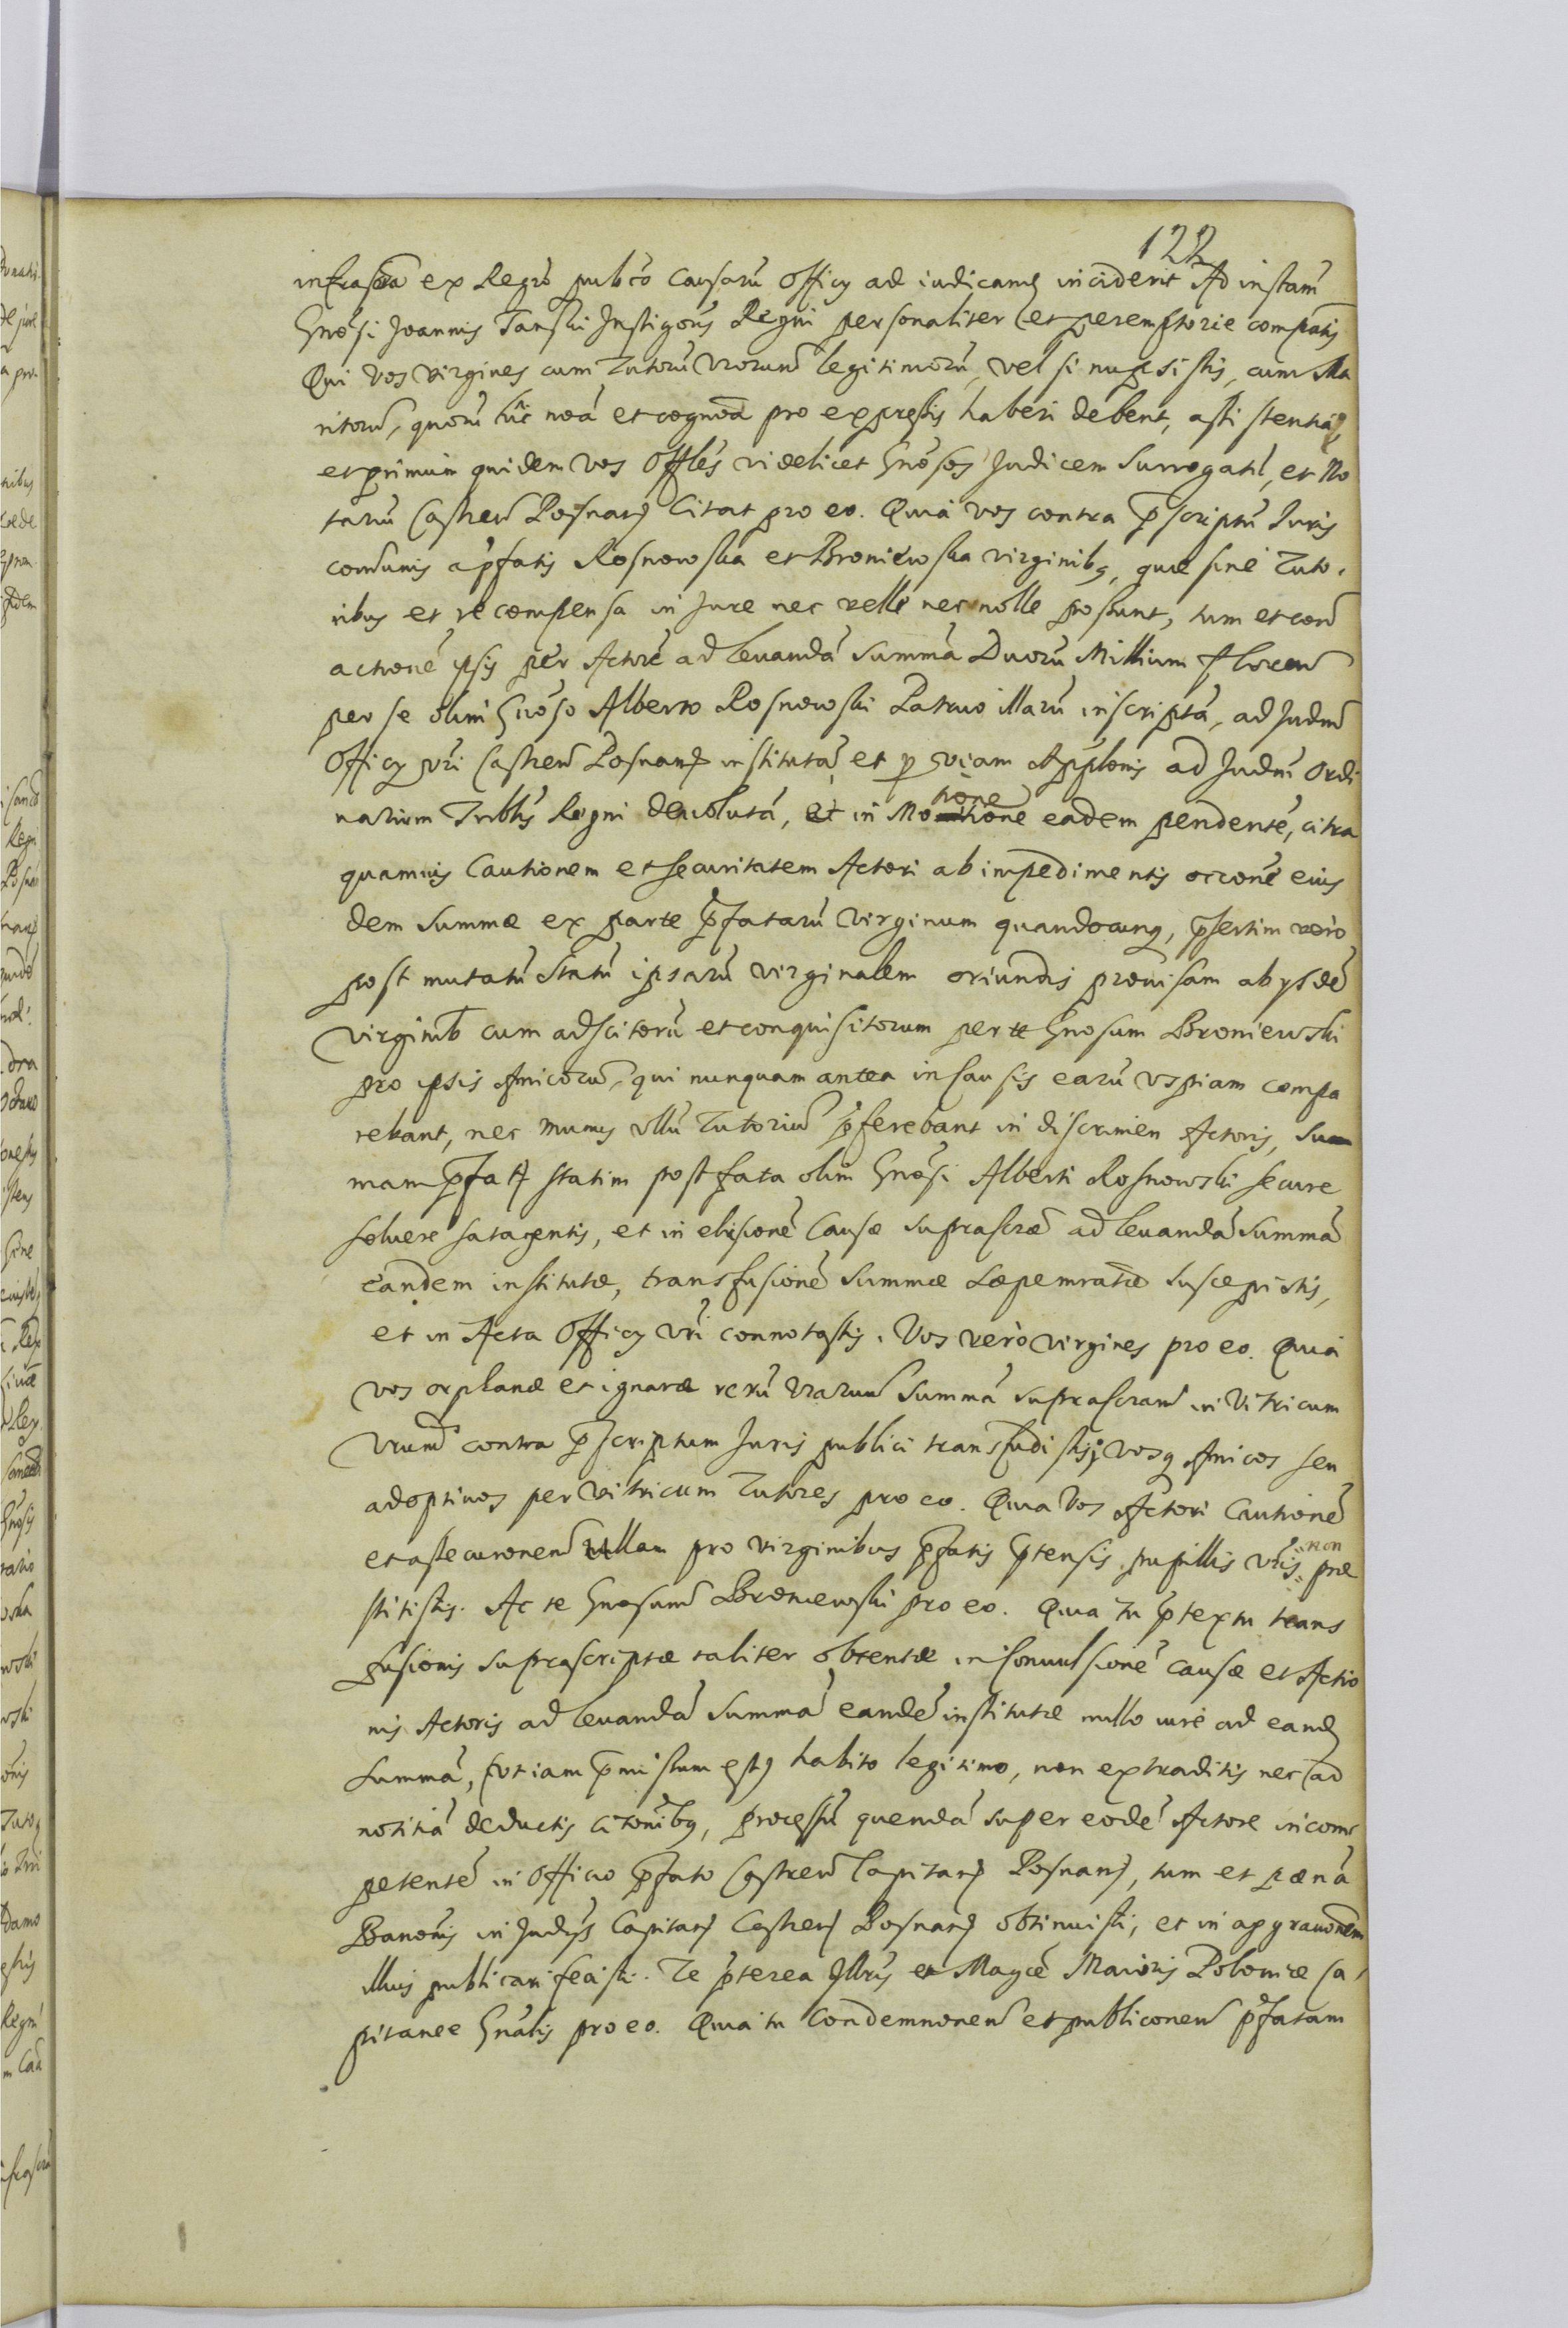 122
infrascra ex Regro pubco Causarū Officy ad iudicand inciderit Ad instam
Gnosi Joannis Tanski Instigoris Regni personaliter et peremptorie compatis
Qui vos virgines cum Tutorū vrorum legitimorū, vel si nupsistis, cum Ma
ritorū, quorū hic noa et cognoa pro expressis haberi debent, assistentia,
et primum quidem vos Offles videlicet Gnosos Judicem Surrogatū, et No
tariū Castren Posnan Citat pro eo. Quia vos contra p̄scriptū Juris
comunis a p̄fatis Rosnowska et Broniewska virginibq, quæ sine Tuto,
ribus et re compensa in Jure nec velle nec nolle possunt, tum et
actionē ipsis per Actorē ad levandā Summā Duorū Millium Floren
per se olim Gnoso Alberto Rosnowski Patruo illarū inscriptā, ad Judm
Officy vri Castren Posnan institutā et p viam Applonis ad Judm Ordi
narium Triblis Regni devolutā, et in Motione tione eadem pendentē, citra
quamvis Cautionem et securitatem Actori ab impedimentis occone eius
dem Summæ ex parte p̄fatarū virginum quandocunq, p̄sertim vero
post mutatū Statū ipsarū virginalem oriundis provisam ab ysdē
virginib cum adscitorū et conquisitorum per te Gnosum Broniewski
pro ipsis Amicorū, qui nunquam antea in Causis earū uspiam compa
rebant, nec munus ullū Tutoriū p̄ferebant in discrimen Actoris, Su
mam p̄fatā statim post fata olim Gnosi Alberti Rosnowski secure
solvere satagentis, et in elusionē Causæ suprascræ ad levandā Summā
eandem institutæ, transfusionē Summæ sæpemratæ suscepistis,
et in Acta Officy vri connotastis. Vos vero virgines pro eo. Quia
vos orphanæ et ignaræ rerū vrarum Summā suprascram in Vitricum
vrum contra p̄scriptum Juris publici transfudistis, vosq Amicos seu
adoptivos per vitricum Tutores pro eo. Quia Vos Actori Cautionē
et assecuronem ullam pro virginibus p̄fatis p̄tensis pupillis vris non præ
stitistis. Ac te Gnosum Broniewski pro eo. Quia tu p̄textu trans
fusionis suprascriptæ taliter obtentæ in convulsionē causæ et Actio
nis Actoris ad levandā Summā eandē institutæ nullo iure ad eand
Summā, (ut iam p̄missum est) habito legitimo, non extraditis nec ad
notitiā deductis citonibq, processū quendā super eodē Actore incom
petentē in Officio p̄fato Castren Capitan Posnan, tum et pænā
Banonis in Judys Capitan Castren Posnan obtinuisti, et in aggravonem
illius publicari fecisti. Te p̄terea Illris et Magce Maioris Poloniæ Ca,
pitanee Gnalis pro eo. Quia tu Condemnonem et publiconem p̄fatam